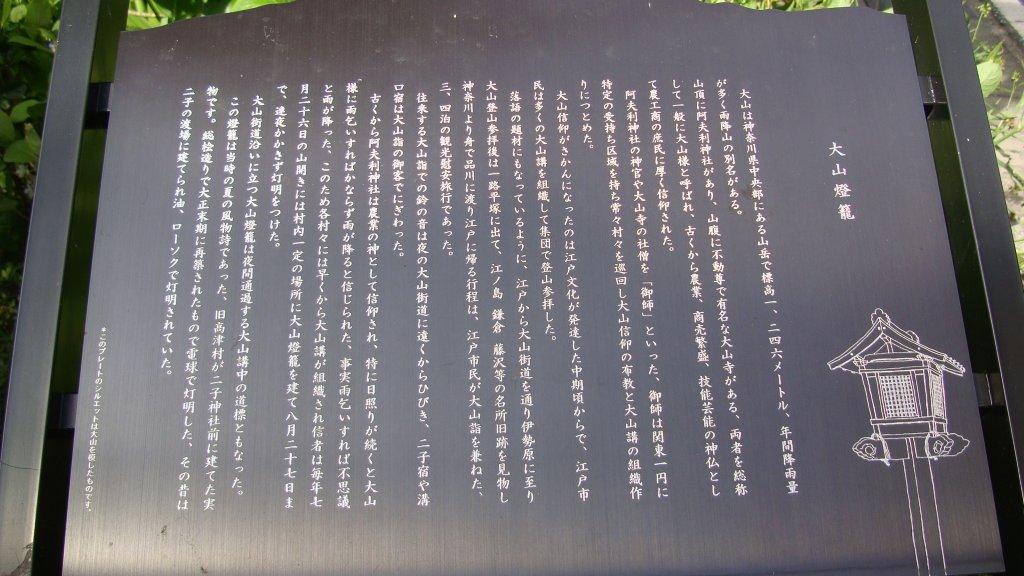 大山燈籠
大山は神奈川県中央部にある山岳で標高一、二四六メートル、年間降雨量
が多く雨降山の別名がある。
山頂に阿夫利神社があり、山腹に不動尊で有名な大山寺がある、両者を総称
して一般に大山様と呼ばれ、古くから農業、商売繁盛、技能芸能の神仏とし
て農工商の庶民に厚く信仰された。
阿夫利神社の神官や大山寺の社僧を「御師」といった、御師は関東一円に
特定の受持ち区域を持ち常々村々を巡回し大山信仰の布教と大山講の組織作
りにつとめた。
大山信仰がさかんになったのは江戸文化が発達した中期頃からで、江戸市
民は多くの大山講を組織して集団で登山参拝した。
落語の題材にもなっているように、江戸から大山街道を通り伊勢原に至り
大山登山参拝後は一路平塚に出て、江ノ島 鎌倉 藤沢等の名所旧跡を見物し
神奈川より舟で品川に渡り江戸に帰る行程は、江戸市民が大山詣を兼ねた、
三、四泊の観光慰安旅行であった。
往来する大山詣での鈴の音は夜の大山街道に遠くからひびき、二子宿や溝
口宿は大山詣の御客でにぎわった。
古くから阿夫利神社は農業の神として信仰され、特に日照りが続くと大山
様に雨乞いすればかならず雨が降ると信じられた、事実雨乞いすれば不思議
と雨が降った、このため各村々には早くから大山講が組織され信者は毎年七
月二十六日の山開きには村内一定の場所に大山燈籠を建て八月二十七日ま
で、連夜かかさず灯明をつけた。
大山街道沿いに立つ大山燈籠は夜間通過する大山講中の道標ともなった。
この燈籠は当時の夏の風物詩であった、旧高津村が二子神社前に建てた実
物です。総桧造りで大正末期に再築されたもので電球で灯明した、その昔は
二子の渡場に建てられ油、ローソクで灯明されていた。
＊このプレートのシルエットは大山を模したものです。